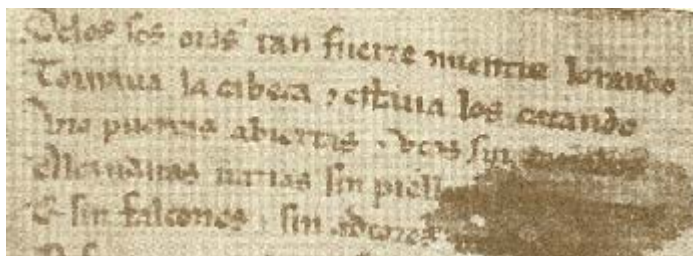 Delos sos oios tan fuerte mientre lorando
Tornaua la cabeça ⁊ estaua los catando
Vio puertas abiertas ⁊ vços sin cañados
Alcandaras uazias sin pielles
E sin falcones ⁊ sin adtores